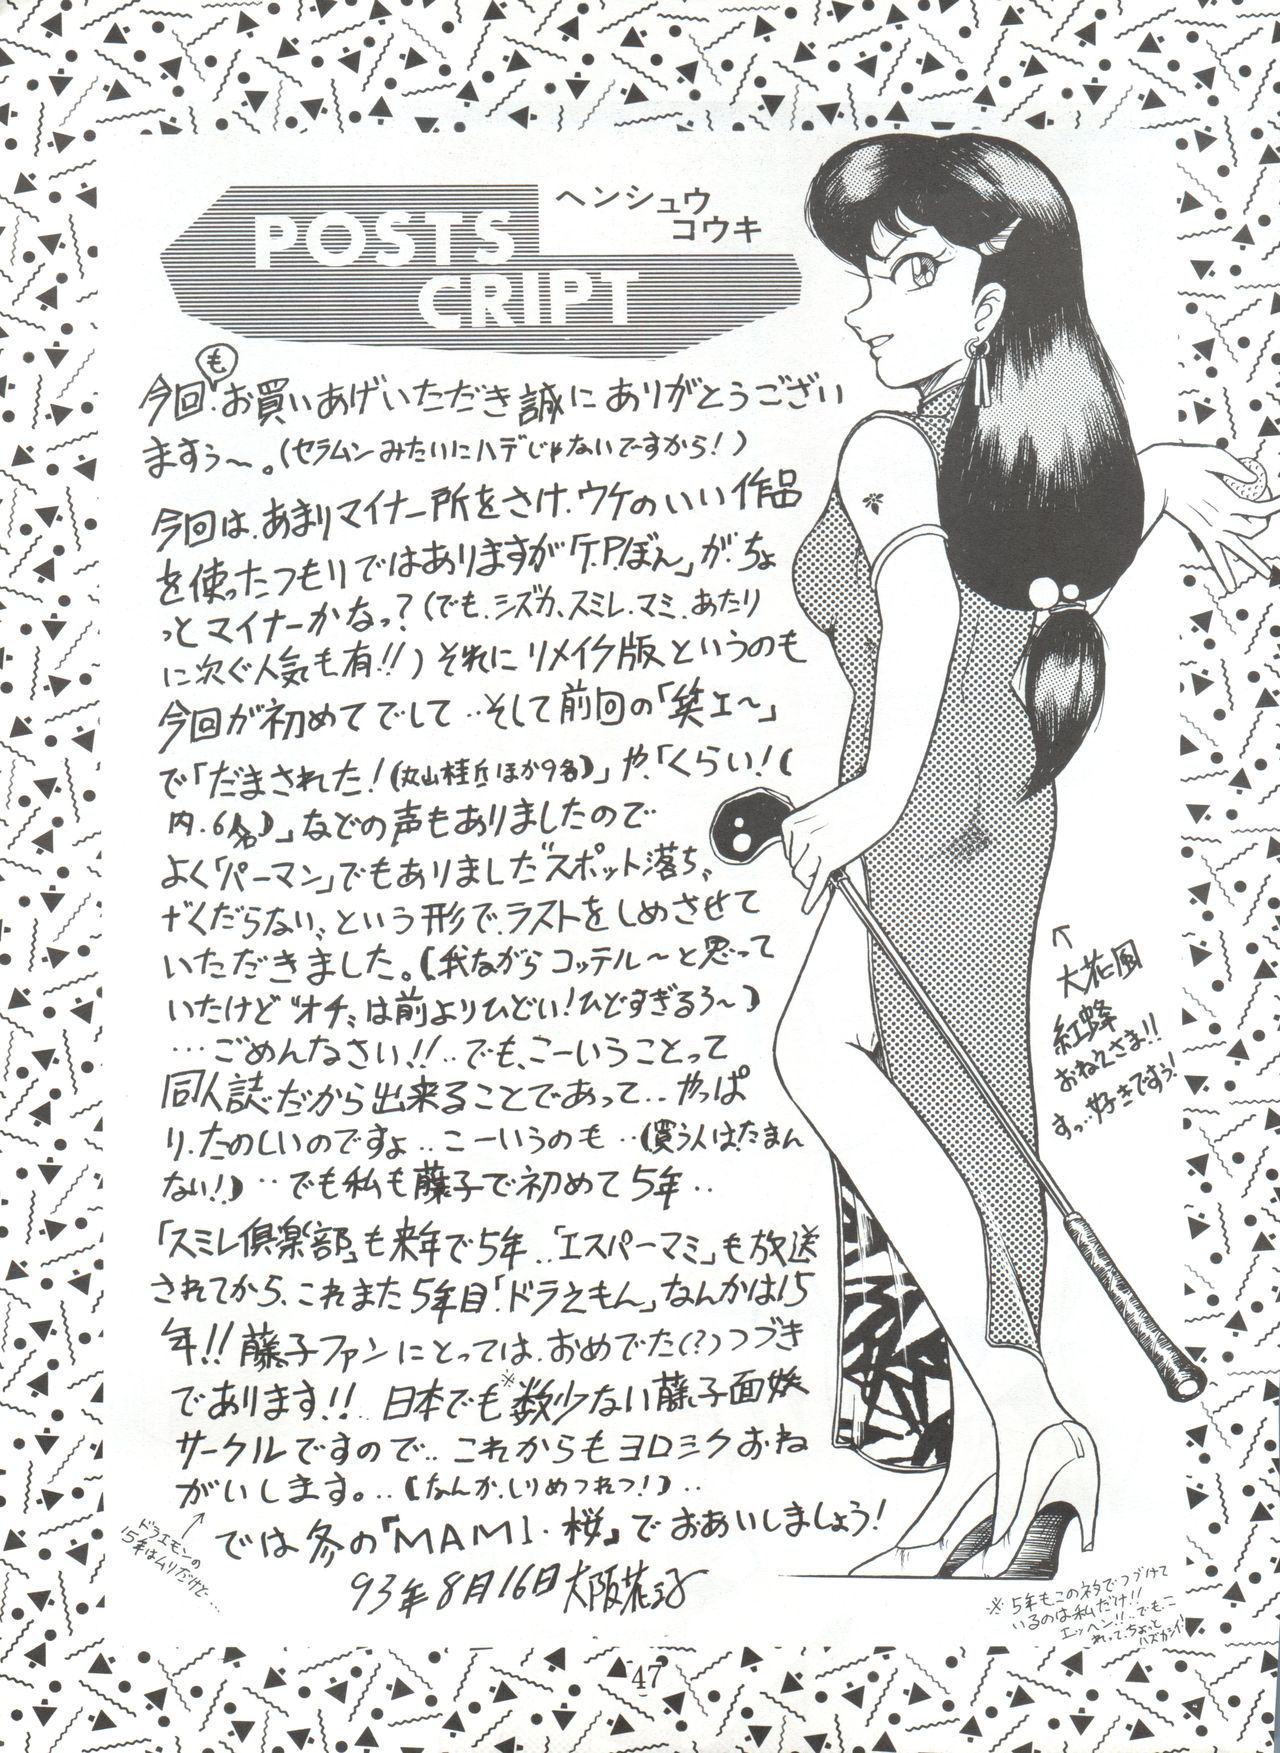 POSTS
CRIPT
ヘンシュウ
コウキ
今回もお買いあげいただき誠にありがとうござい
ますぅ～。(セラムンみたいにハデじゃないでーすから!)
今回は、あまりマイナー所をさけ、ウケのいい作品
を使ったつもりではありますが「T.Pぼん」が、ちょ
っとマイナーかなっ?(でも、シズカ、スミレ、マミ、あたり
に次ぐ人気も有!!)それにリメイク版というのも
今回が初めてでして‥そして前回の「笑ェ～」
で「だまされた!(丸山桂丘ほか9名)」や、「くらい!(
内、6名)」などの声もありましたので
よく「パーマン」でもありました〝スポット落ち、
くだらない〟という形で、ラストをしめさせて
いただきました。(我ながらコッテル～と思って
いたけど〝オチ〟は前よりひどい!ひどすぎるぅ～)
…ごめんなさい!!‥でも、こーいうことって
同人誌だから出来ることであって‥やっぱ
り、たのしいのですょ‥こーいうのも‥(買う人は、たまん
ない!)‥でも私も藤子で初めて5年‥
「スミレ倶楽部」も来年で5年‥「エスパーマミ」も放送
されてから、これまた5年目!「ドラえもん」なんかは15
年!!藤子ファンにとっては、おめでた(?)つづき
であります!!‥日本でも※数少ない藤子面妖
サークルですので‥これからもヨロミクおね
がいします。‥(なんか、しりめつれつ!)‥
では冬の『MAMI・桜』でおあいしましょう!
93年8月16日 大阪花子
ドラエモンの
15年はムリだけど…
↑
大花風
紅蜂
おねえさま!!
すっ‥好きですぅ!
※5年も、このネタでつづけて
いるのは私だけ!!
エッヘン!!‥でも、こ
れって、ちょっと
ハズカシイ
47